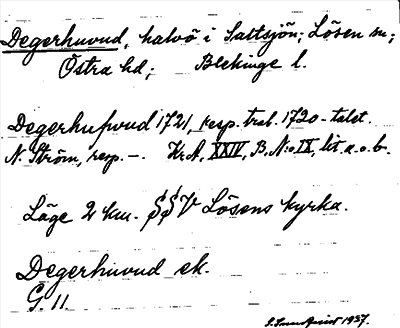 Degerhuvud, halvö i Saltsjön; Lösen sn;
Östra hd; Blekinge l.
Degerhufwud 1721, resp. trol. 1720-talet.
N. Ström, resp. –. Kr.A, XXIV, B, N:o IX, lit. a. o. b.
Läge 2 km. SSV Lösens kyrka.
Degerhuvud ek.
G. 11.
1937